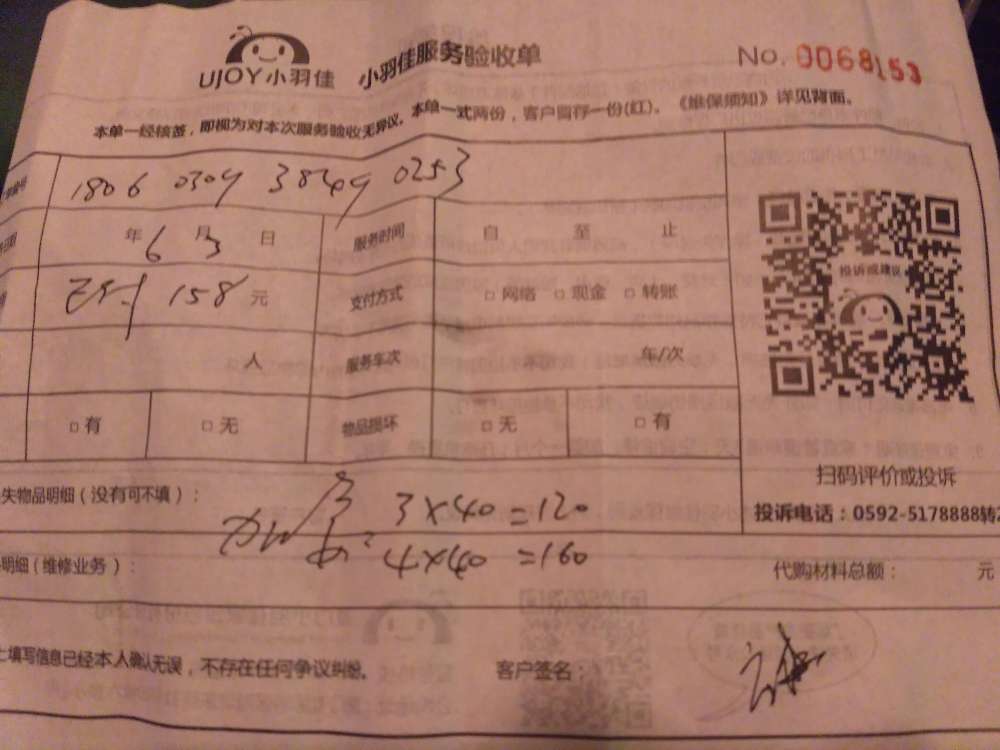 UJOY小羽佳 小羽佳服务验收单 No. 0068153
本单一经核签，即视为对本次服务验收无异议。本单一式两份，客户留存一份(红)。《维保须知》详见背面。
编号 1806 0304 3849 0253
年 6 月 3 日 服务时间 自 至 止
已付 158 元 支付方式 □ 网络 □ 现金 □ 转账
投诉或建议
人 服务车次 年/次
□ 有 □ 无 物品损坏 □ 无 □ 有
扫码评价或投诉
失物品明细（没有可不填）：
3×40=120
投诉电话：0592-5178888转2
4×40=160
明细（维修业务）： 代购材料总额： 元
上填写信息已经本人确认无误，不存在任何争议纠纷。 客户签名：